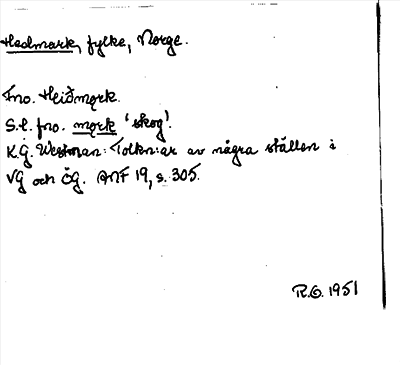 Hedmark, fylke, Norge.
Fno. Heiðmǫrk.
S.l. fno. mǫrk 'skog'.
K.G. Westman: Tolkn:ar av några ställen i
VG och ÖG. ANF 19, s. 305.
R.O. 1951